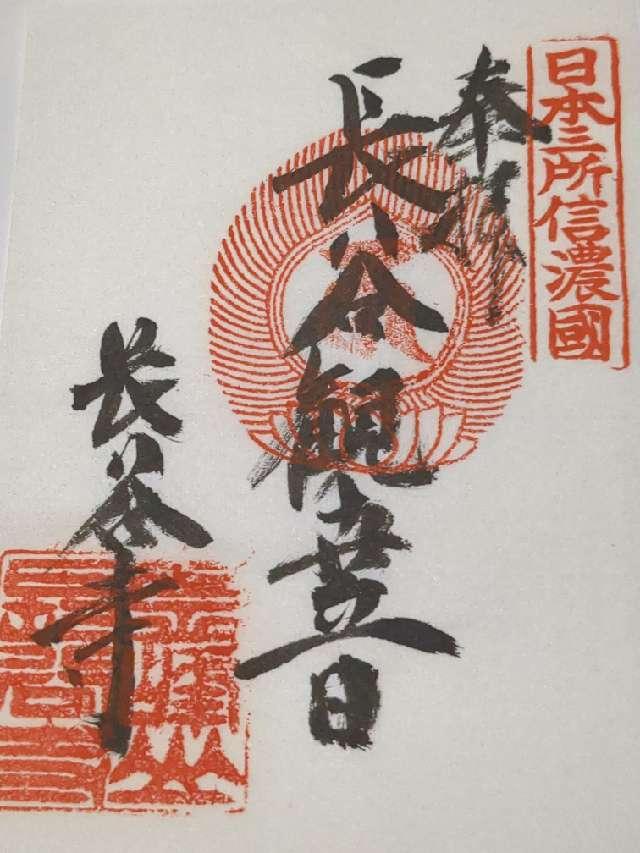 日本三所信濃國
奉拝
長谷觀音
長谷寺